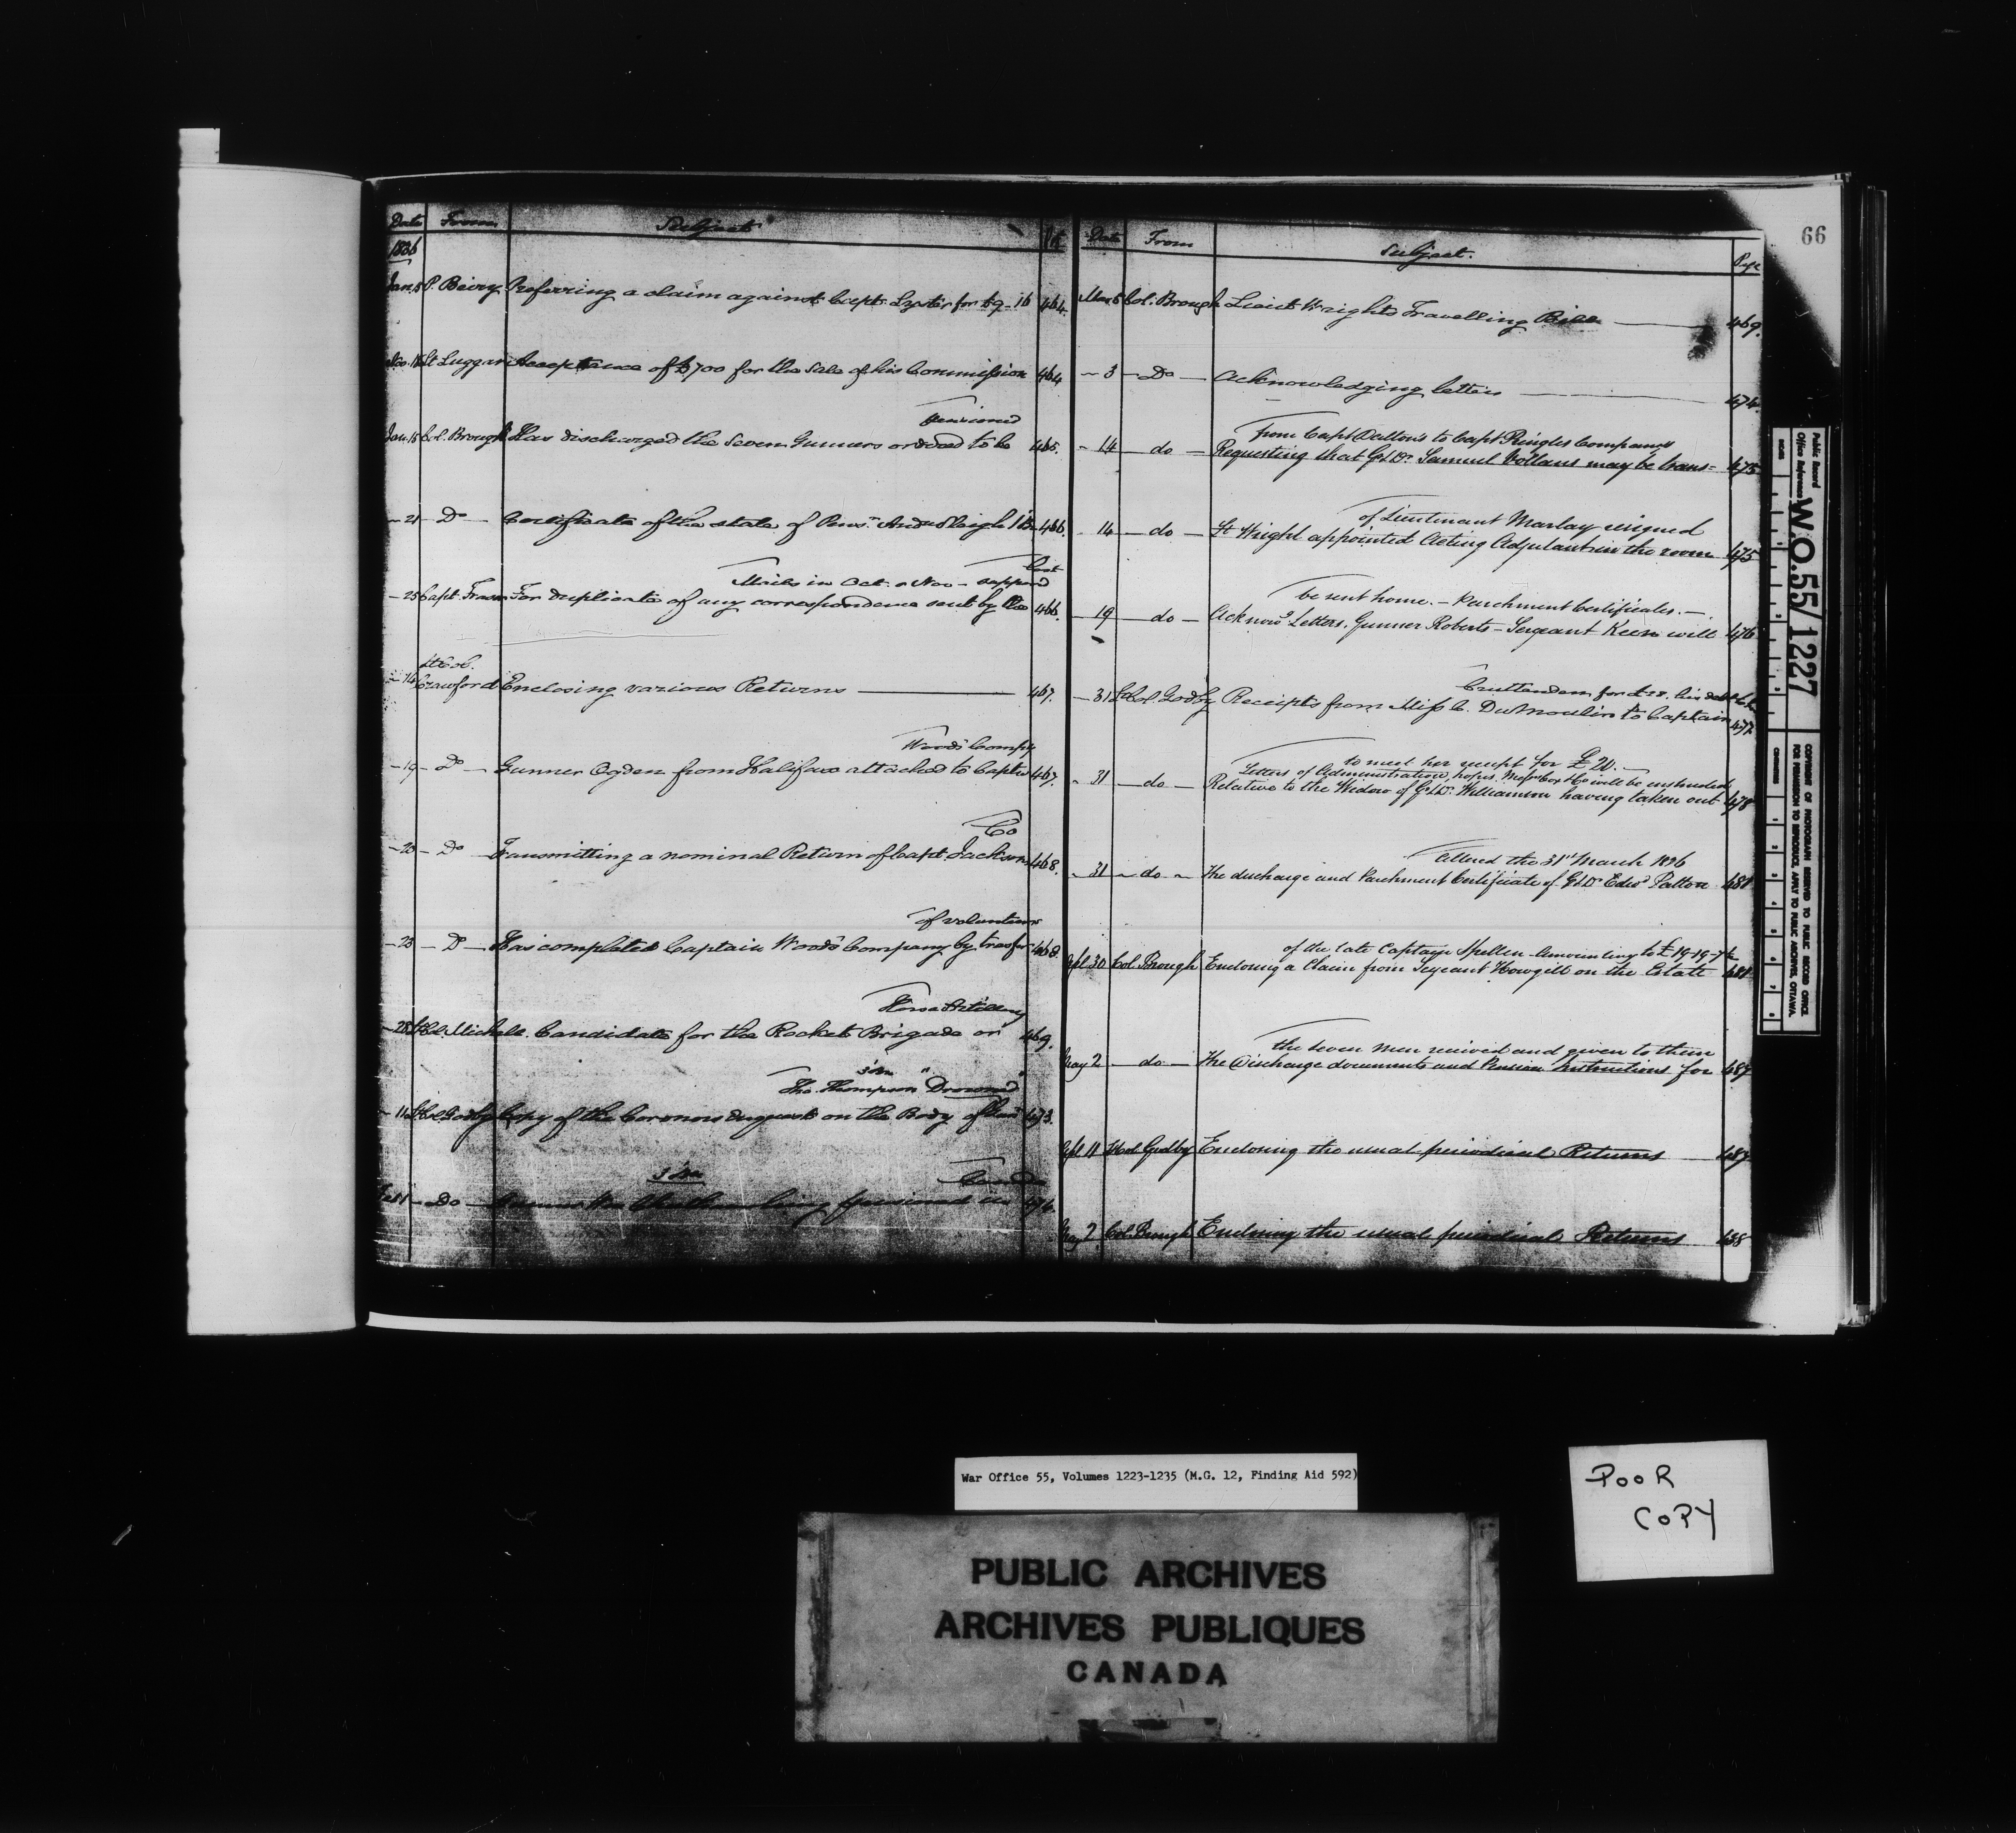 66
Date From Subject
1836
Jany 5 P. Beiry Preferring a claim against Capt. Lyster for £9-16 464.
Nov. 16 Lt Luggar Acceptance of £700 for the Sale of his Commission 464
pensioned
Jan. 15 Col. Brough Has discharged the Seven Gunners ordered to be 465.
- 21 - Do - Certificate of the state of 466.
lost
Mails in Oct. & Nov - supposed
- 25 Capt. Fraser For duplicate of any correspondence sent by the 466.
Lt Col.
- 14 Crawford Enclosing various Returns 467.
Woods Compy
- 19 - Do - Gunner Ogden from Halifax attached to Captn 467.
Co
- 20 - Do Transmitting a nominal Return of Capt Jacksons 468.
of volunteers
- 23 - Do - Has completed Captain Woods Company by transfer 468
Horse Artillery
- 28 Michell. Candidate for the Rocket Brigade or 469.
Tho. Thompson Drowned
- 11 Lt Col Godby Copy of the Coroners Inquest on the Body of 473.
3 Bn Canada
Feb 1 - Do being pensioned in 474.
Date From Subject. Page
Mar 5 Col. Brough Lieut Wrights Travelling Bill 469.
- 3 - Do - Acknowledging letters 474.
from Capt Dalton's to Capt Pringles Company
- 14 - do - Requesting that G & Dr. Samuel Vollans may be trans= 475
of Lieutenant Marlay resigned
- 14 - do - Lt Wright appointed Acting Adjutant in the room 475
be sent home. - Parchment Certificates. -
- 19 - do - Acknowg Letters, Gunner Roberts - Sergeant Keen will 476
Cruttenden for £28. his debt &c
- 31 Lt Col. Godby Receipts from Miss C. DuMoulin to Captain 477
to meet her receipt for £20. -
Letters of Administration, hopes Messrs Cox & Co will be instructed
- 31 - do - Relative to the Widow of G & Dr. Williamson having taken out 478
Altered the 31st March 1836
- 31 - do - The discharge and Parchment Certificate of G & Dr Edwd Patton 481
of the late Captain Spellen Amounting to £19-19-7½
Apl 30 Col. Brough Enclosing a Claim from Sergeant Howgill on the Estate 481
the seven men received and given to them
May 2 - do - The Discharge documents and Pension Instructions for 487
Apl. 11 Lt Col Godby Enclosing the usual periodical Returns 487
May 2. Col. Brough Enclosing the usual periodical Returns 488
Public Record
Office Reference W.O. 55/1227
COPYRIGHT OF PHOTOGRAPH RESERVED TO PUBLIC RECORD OFFICE
FOR PERMISSION TO REPRODUCE APPLY TO PUBLIC ARCHIVES, OTTAWA.
War Office 55, Volumes 1223-1235 (M.G. 12, Finding Aid 592)
POOR
COPY
PUBLIC ARCHIVES
ARCHIVES PUBLIQUES
CANADA